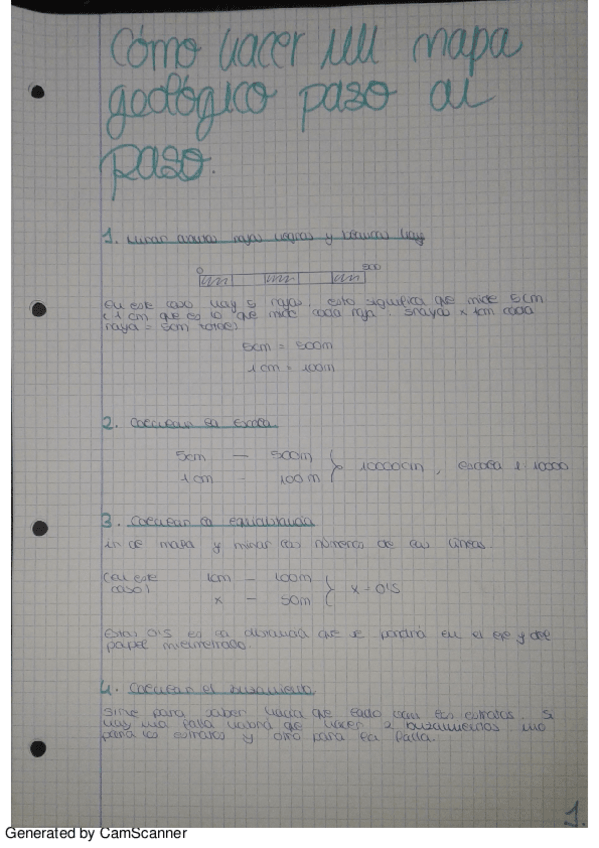 Cómo hacer un mapa
geológico paso a
paso.
1. Mirar cuantas rayas negras y blancas hay
0 500
En este caso hay 5 rayas. esto significa que mide 5cm
(1 cm que es lo que mide cada raya. 5 rayas x 1cm cada
raya = 5cm totales)
5cm = 500m
1 cm = 100m
2. Calcular la escala
5cm — 500m
1 cm - 100m
10000cm, escala 1 10000
3. Calcular la equidistancia
Ir al mapa y mirar los números de las líneas.
(en este
caso)
1cm — 100m
x — 50m
x = 0'5
Estos 0'5 es la distancia que se pondrá en el eje y del
papel milimetrado.
4. Calcular el buzamiento
Sirve para saber hacia que lado van los estratos. Si
hay una falla habrá que hacer 2 buzamientos uno
para los estratos y otro para la falla.
1.
Generated by CamScanner